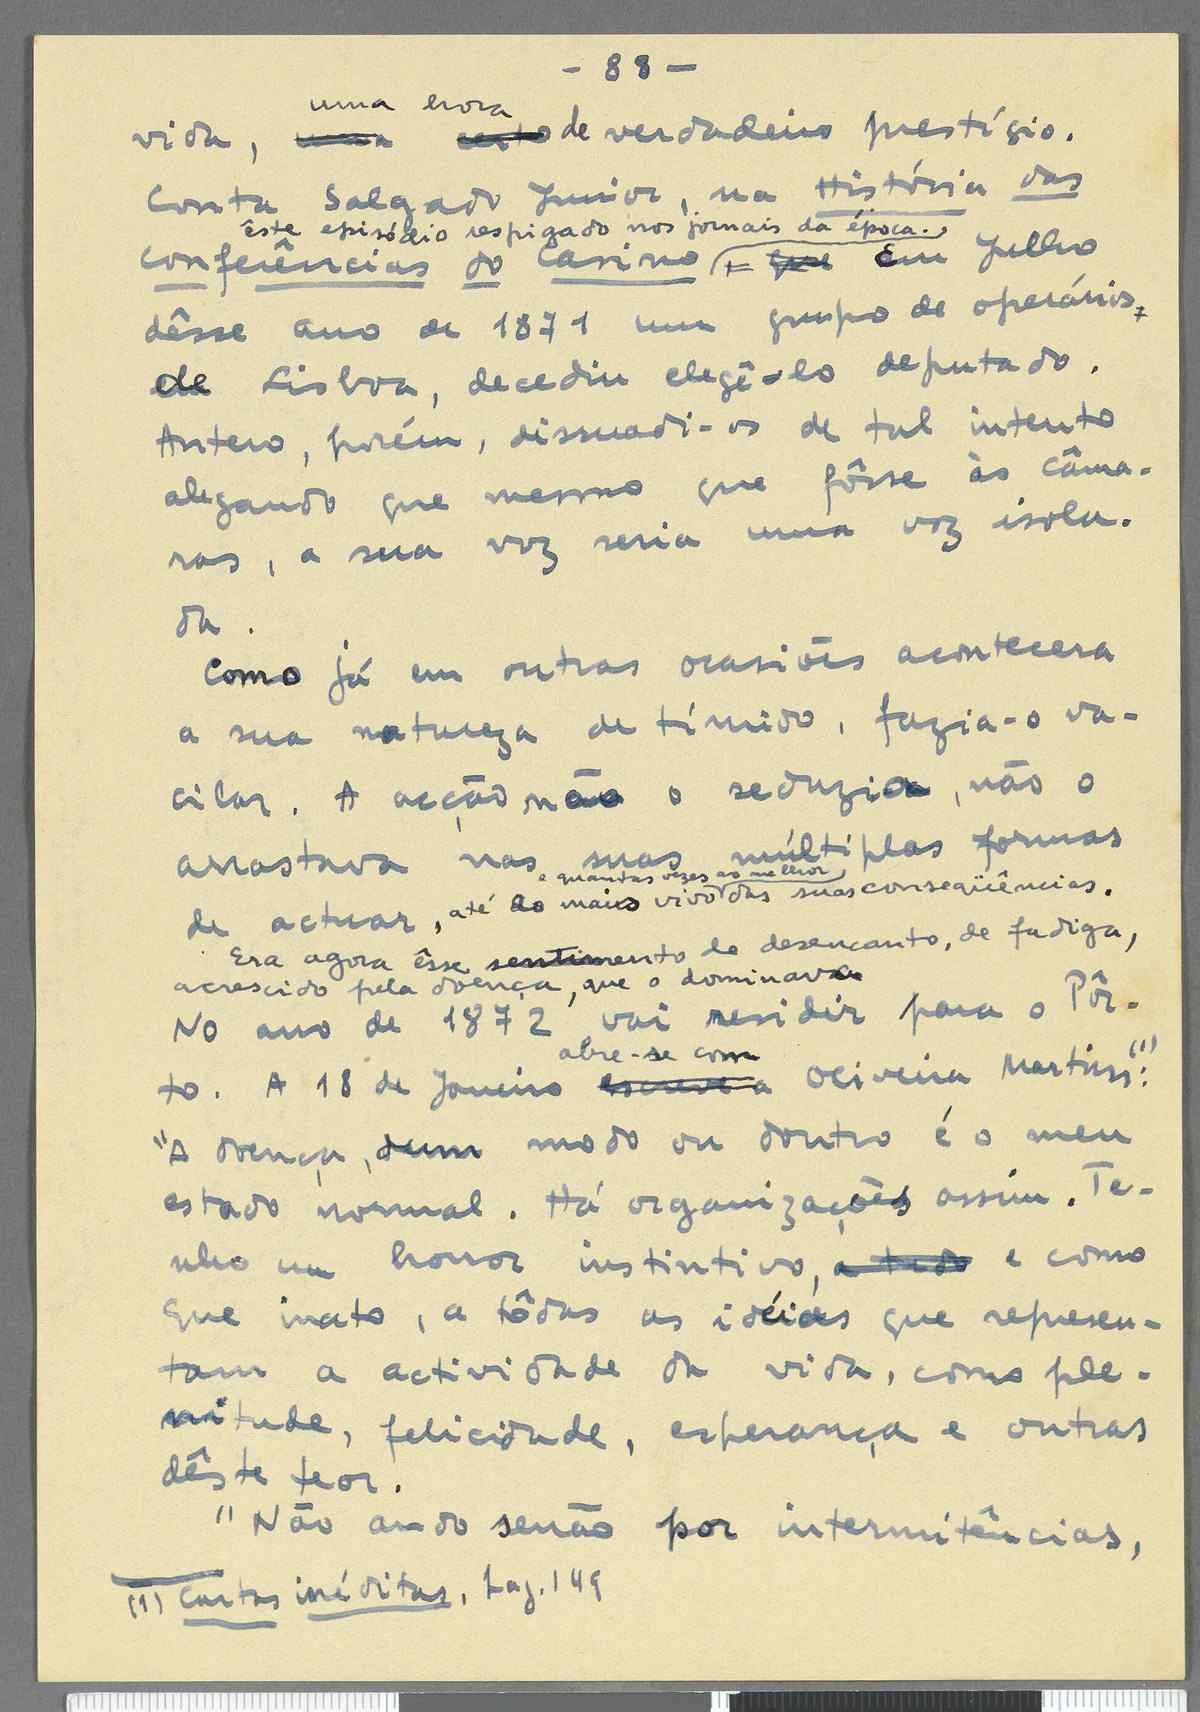 - 88 -
uma hora
vida, uma certo de verdadeiro prestígio.
Conta Salgado Junior, na História das
êste episódio respigado nos jornais da época.
Conferências do Casino que Em Julho
dêsse ano de 1871 um grupo de operários,
de Lisboa, decediu elegê-lo deputado.
Antero, porém, dissuadi-os de tal intento
alegando que mesmo que fôsse às Câma-
ras, a sua voz seria uma voz isola-
da.
Como já em outras ocasiões acontecera
a sua natureza de tímido, fazia-o va-
cilar. A acção não o seduzia, não o
arrastava nas suas múltiplas formas
e quantas vezes ao melhor
de actuar, até ao mais vivo das suas conseqüências.
Era agora êsse sentimento de desencanto, de fadiga,
acrescido pela doença, que o dominava
No ano de 1872 vai residir para o Pôr-
abre-se com
to. A 18 de Janeiro escreve a Oliveira Martins (1):
"A doença, dum modo ou doutro é o meu
estado normal. Há organizações assim. Te-
nho um horror instintivo, a tudo e como
que inato, a tôdas as idéias que represen-
tam a actividade da vida, como ple-
nitude, felicidade, esperança e outras
dêste teor.
"Não ando senão por intermitências,
(1) Cartas inéditas, pag. 149